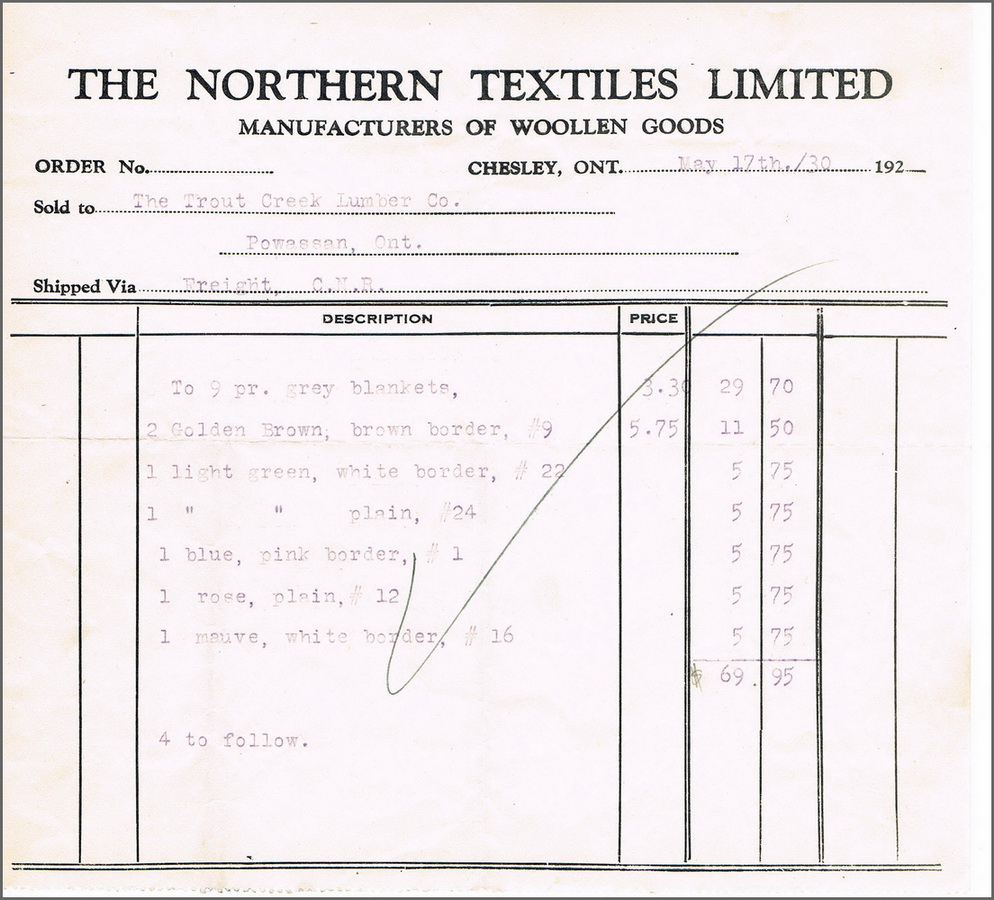 THE NORTHERN TEXTILES LIMITED
MANUFACTURERS OF WOOLLEN GOODS
ORDER No. CHESLEY, ONT. May 17th./30 192
Sold to The Trout Creek Lumber Co.
Powassan, Ont.
Shipped Via Freight, C.N.R.
DESCRIPTION PRICE
To 9 pr. grey blankets, 3.30 29 70
2 Golden Brown, brown border, #9 5.75 11 50
1 light green, white border, # 22 5 75
1 " " plain, #24 5 75
1 blue, pink border, # 1 5 75
1 rose, plain,# 12 5 75
1 mauve, white border, # 16 5 75
$ 69. 95
4 to follow.